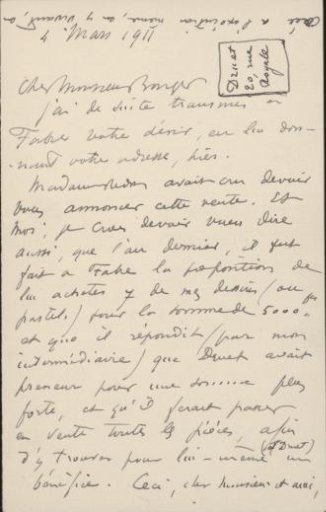 4 Mars 1911
Druet
20, rue
Royale
Cher Monsieur Bonger
j'ai de suite transmis à
Fabre votre désir, en lui don-
-nant votre adresse, hier.
Madame Redon avait cru devoir
vous annoncer cette vente. Et
moi, je crois devoir vous dire
aussi, que l'an dernier, il fut
fait à Fabre la proposition de
lui acheter 7 de mes dessins (ou
pastels) pour la somme de 5000 frs
et que il répondit (par mon
intermédiaire) que Druet avait
preneur pour une somme plus
forte, et qu'il ferait passer
en vente toutes les pièces, afin
d'y trouver pour lui-même (à Druet) un
bénéfice. Ceci, cher Monsieur et ami,